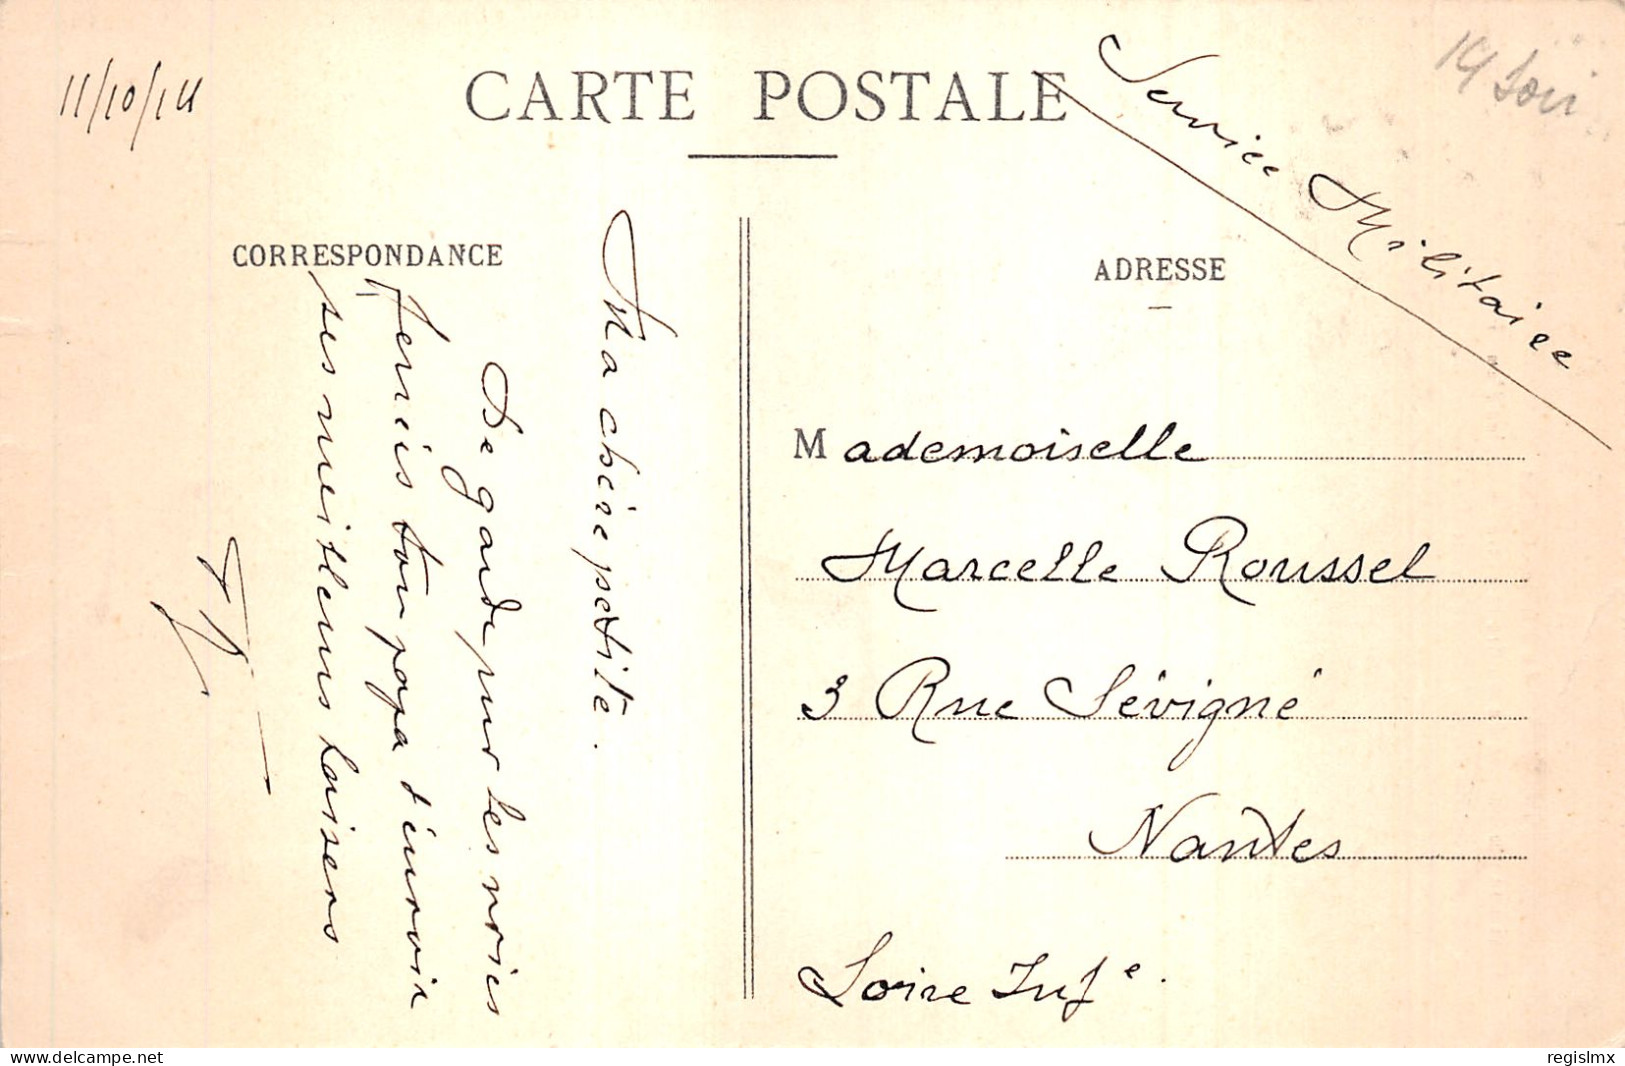 11/10/14
CARTE POSTALE
Service Militaire
19 Soir
CORRESPONDANCE
ADRESSE
Ma chère petite.
De garde sur les voies
ferrées ton papa t'envoie
ses meilleurs baisers
Mademoiselle
Marcelle Roussel
3 Rue Sévigné
Nantes
Loire Infe.
delcampe.net
regislmx